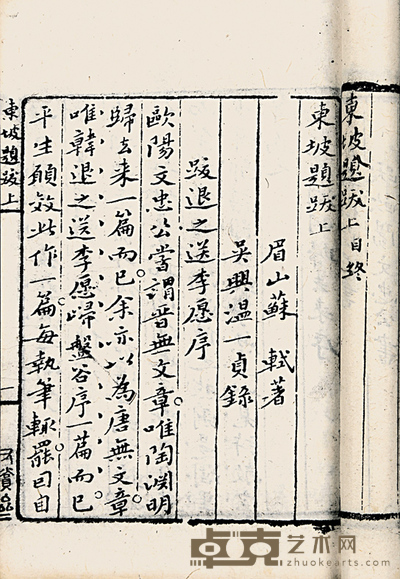 東坡題跋上目終
東坡題跋上
眉山蘇軾著
吳興溫一貞錄
跋退之送李愿序
歐陽文忠公嘗謂晉無文章唯陶淵明
歸去來一篇而已余亦以為唐無文章
唯韓退之送李愿歸盤谷序一篇而已
平生願效此作一篇每執筆輒罷因自
東坡題跋上
一
卓克艺术网
zhuokearts.com